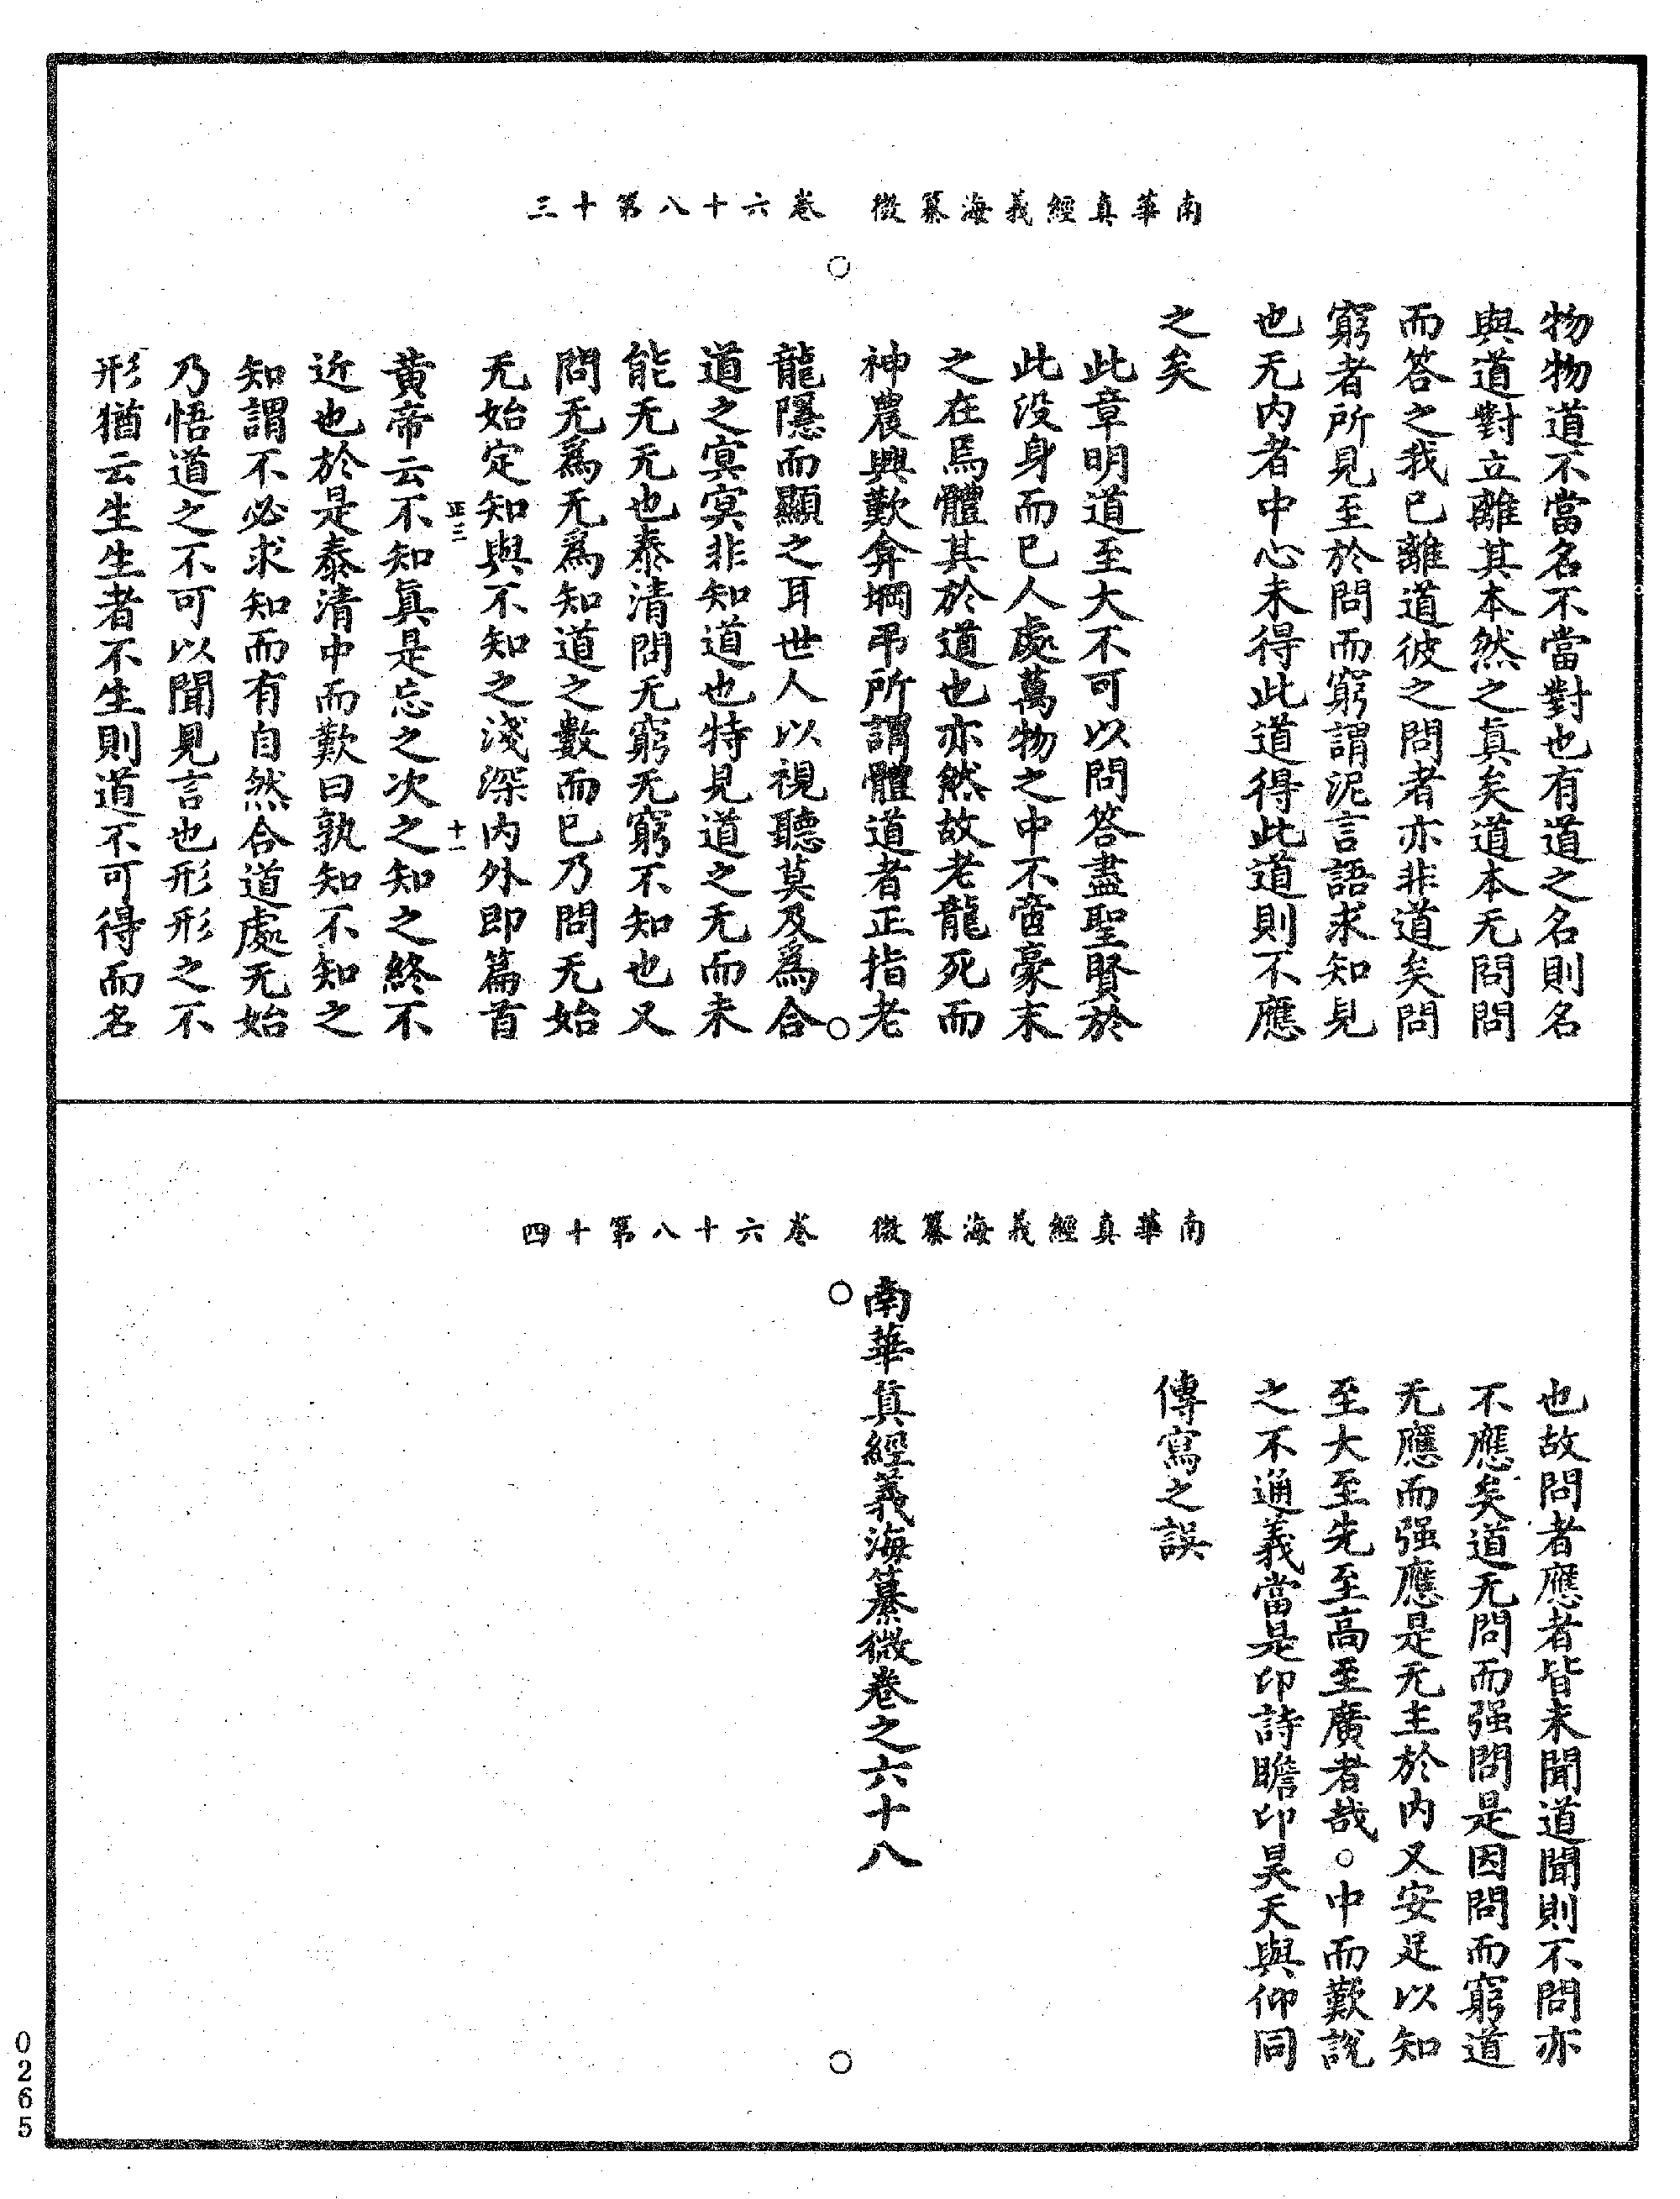 南華真經義海纂微　卷六十八第十三
物物道不當名不當對也有道之名則名
與道對立離其本然之真矣道本无問問
而答之我已離道彼之問者亦非道矣問
窮者所見至於問而窮謂泥言語求知見
也无内者中心未得此道得此道則不應
之矣
此章明道至大不可以問答盡聖賢於
此没身而已人處萬物之中不啻豪末
之在馬體其於道也亦然故老龍死而
神農興歎弇堈弔所謂體道者正指老
龍隱而顯之耳世人以視聽莫及爲合
道之㝠㝠非知道也特見道之无而未
能无无也泰清問无窮无窮不知也又
問无爲无爲知道之數而已乃問无始
无始定知與不知之淺深内外即篇首
正三
十一
黄帝云不知真是忘之次之知之終不
近也於是泰清中而歎曰孰知不知之
知謂不必求知而有自然合道處无始
乃悟道之不可以聞見言也形形之不
形猶云生生者不生則道不可得而名
南華真經義海纂微　卷六十八第十四
也故問者應者皆未聞道聞則不問亦
不應矣道无問而强問是因問而窮道
无應而强應是无主於内又安足以知
至大至先至高至廣者哉○中而歎說
之不通義當是卬詩瞻卬昊天與仰同
傳寫之誤
南華真經義海纂微卷之六十八
0265